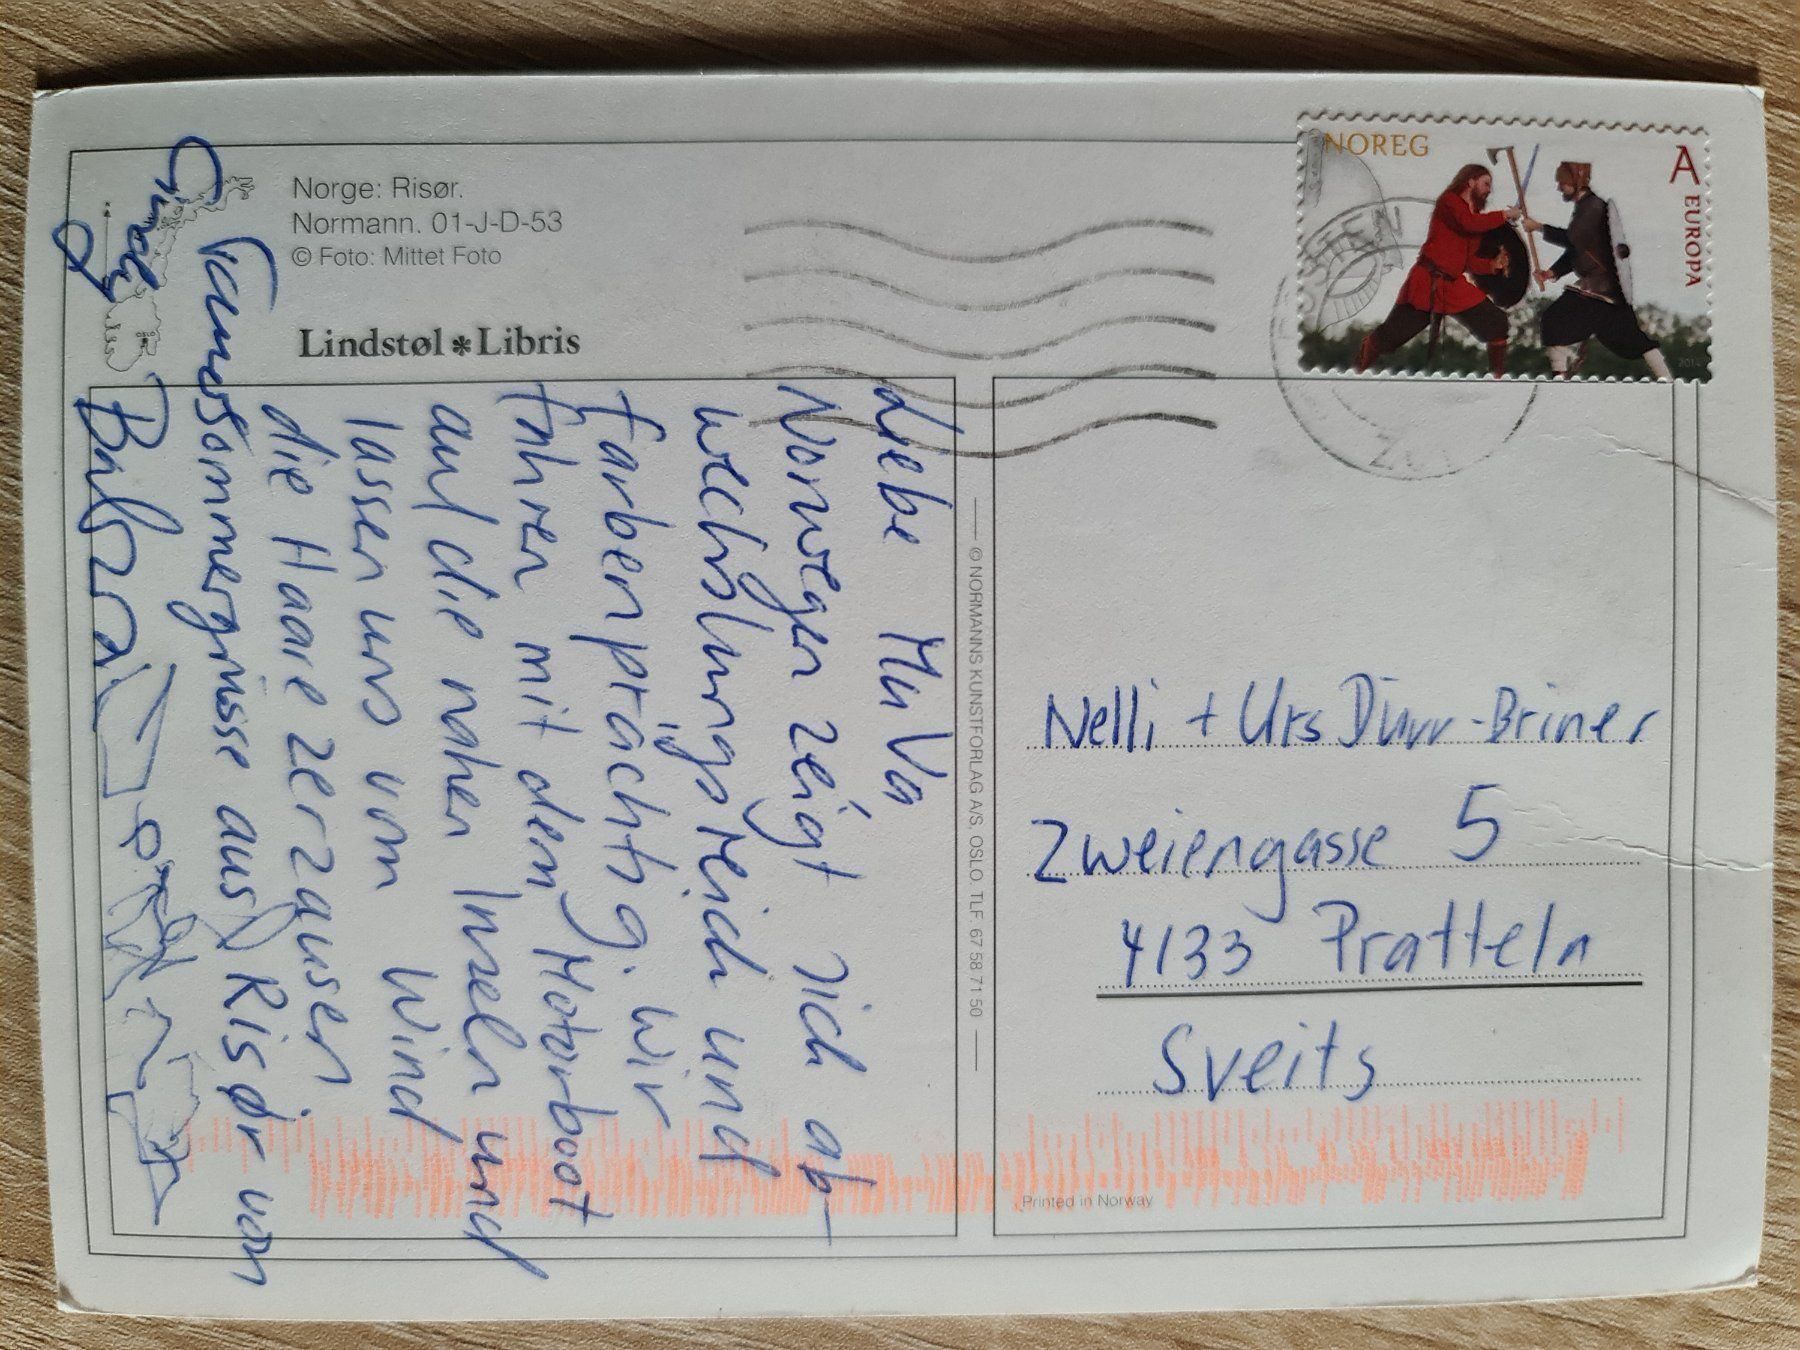 Norge: Risør.
Normann. 01-J-D-53
© Foto: Mittet Foto
Lindstøl * Libris
NOREG
A EUROPA
2014
Liebe Mu Va
Norwegen zeigt sich ab-
wechslungsreich und
farbenprächtig. Wir
fahren mit dem Motorboot
auf die nahen Inseln und
lassen uns vom Wind
die Haare zerzausen
sommergrüsse aus Risør von
© NORMANNS KUNSTFORLAG A/S, OSLO. TLF. 67 58 71 50
Nelli + Urs Dürr-Briner
Zweiengasse 5
4133 Pratteln
Sveits
Printed in Norway